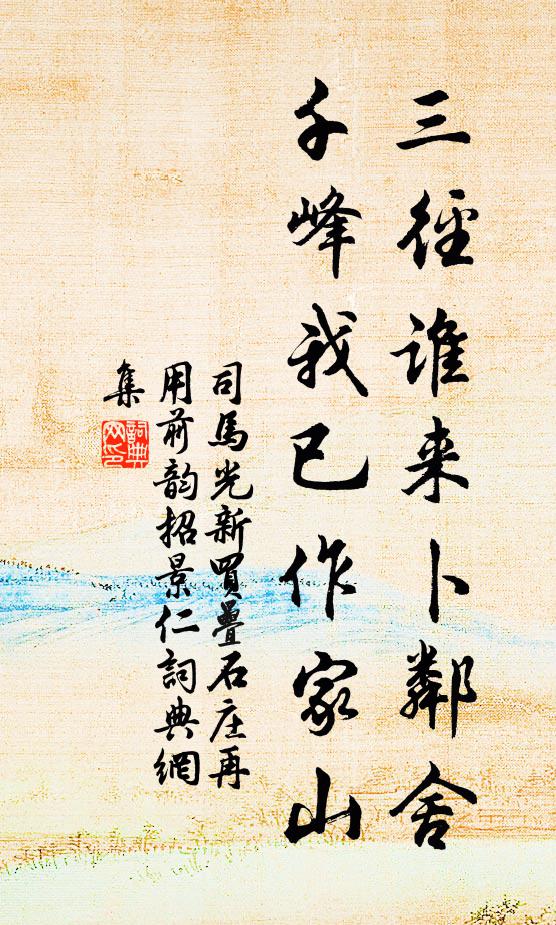 三徑谁来卜鄰舍
千峰我已作家山
司馬光新買疊石庄再
用前韵招景仁詞典網
集
詞典網印